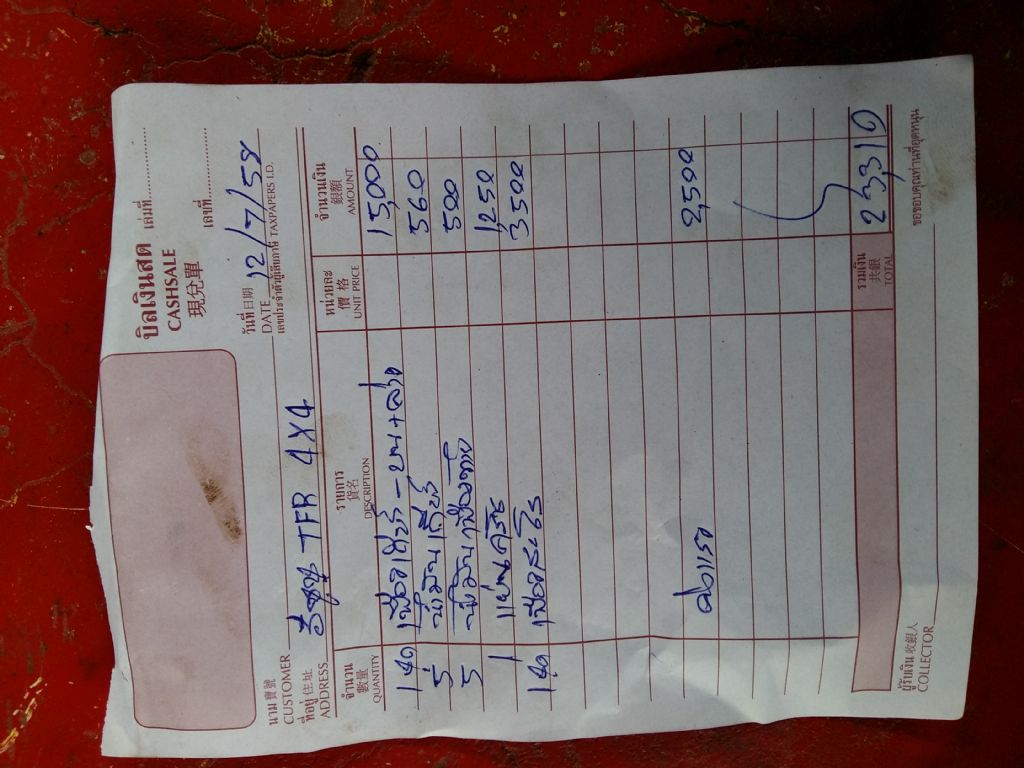 บิลเงินสด เล่มที่
CASHSALE
現兌單 เลขที่
นาม寶號
CUSTOMER
วันที่日期
DATE 12/7/58
ที่อยู่住址
ADDRESS อีซูซุ TFR 4X4
เลขประจำตัวผู้เสียภาษี TAXPAPERS I.D.
จำนวน รายการ หน่วยละ จำนวนเงิน
數量 貨名 價格 銀額
QUANTITY DESCRIPTION UNIT PRICE AMOUNT
1 ชุด เฟืองเกียร์ - บน + ล่าง 15,000
5 น้ำมันเกียร์ 560
5 น้ำมันเฟืองท้าย 500
1 แผ่นคลัช 1,250
1 ชุด เฟือง 3500
ค่าแรง 2,500
รวมเงิน
共銀
TOTAL 23,310
ผู้รับเงิน收銀人
COLLECTOR
ขอขอบคุณท่านที่อุดหนุน